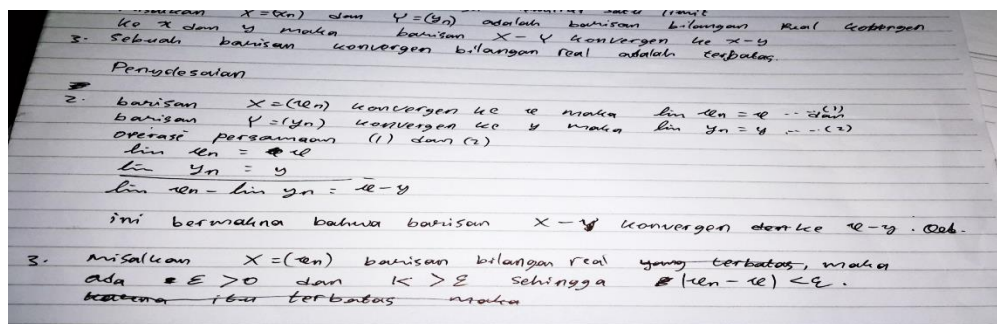 X = (xn) dan Y = (yn) adalah barisan bilangan Real kobergen
ke x dan y maka barisan X - Y konvergen ke x-y
3. Sebuah barisan konvergen bilangan real adalah terbatas.
Penyelesaian
2. barisan X = (xn) konvergen ke x maka lim xn = x ... (1) dan
barisan Y = (yn) konvergen ke y maka lim yn = y ... (2)
operasi persamaan (1) dan (2)
lim xn = x
lim yn = y
lim xn - lim yn = x - y
ini bermakna bahwa barisan X - Y konvergen ke x-y. Qed.
3. misalkan X = (xn) barisan bilangan real yang terbatas, maka
ada ε > 0 dan K > ε sehingga |xn - x| < ε.
karena itu terbatas maka